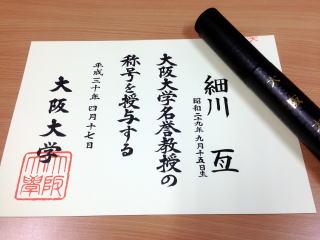 細川 亙
昭和二十九年九月十五日生
大阪大学名誉教授の
称号を授与する
平成三十年 四月十七日
大阪大学